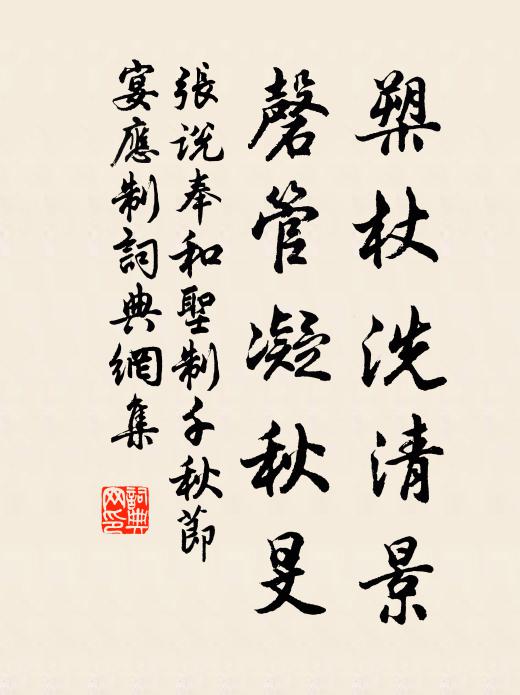 槊杖洗清景
磬管凝秋旻
張說奉和聖制千秋節
宴應制詞典網集
詞典网印